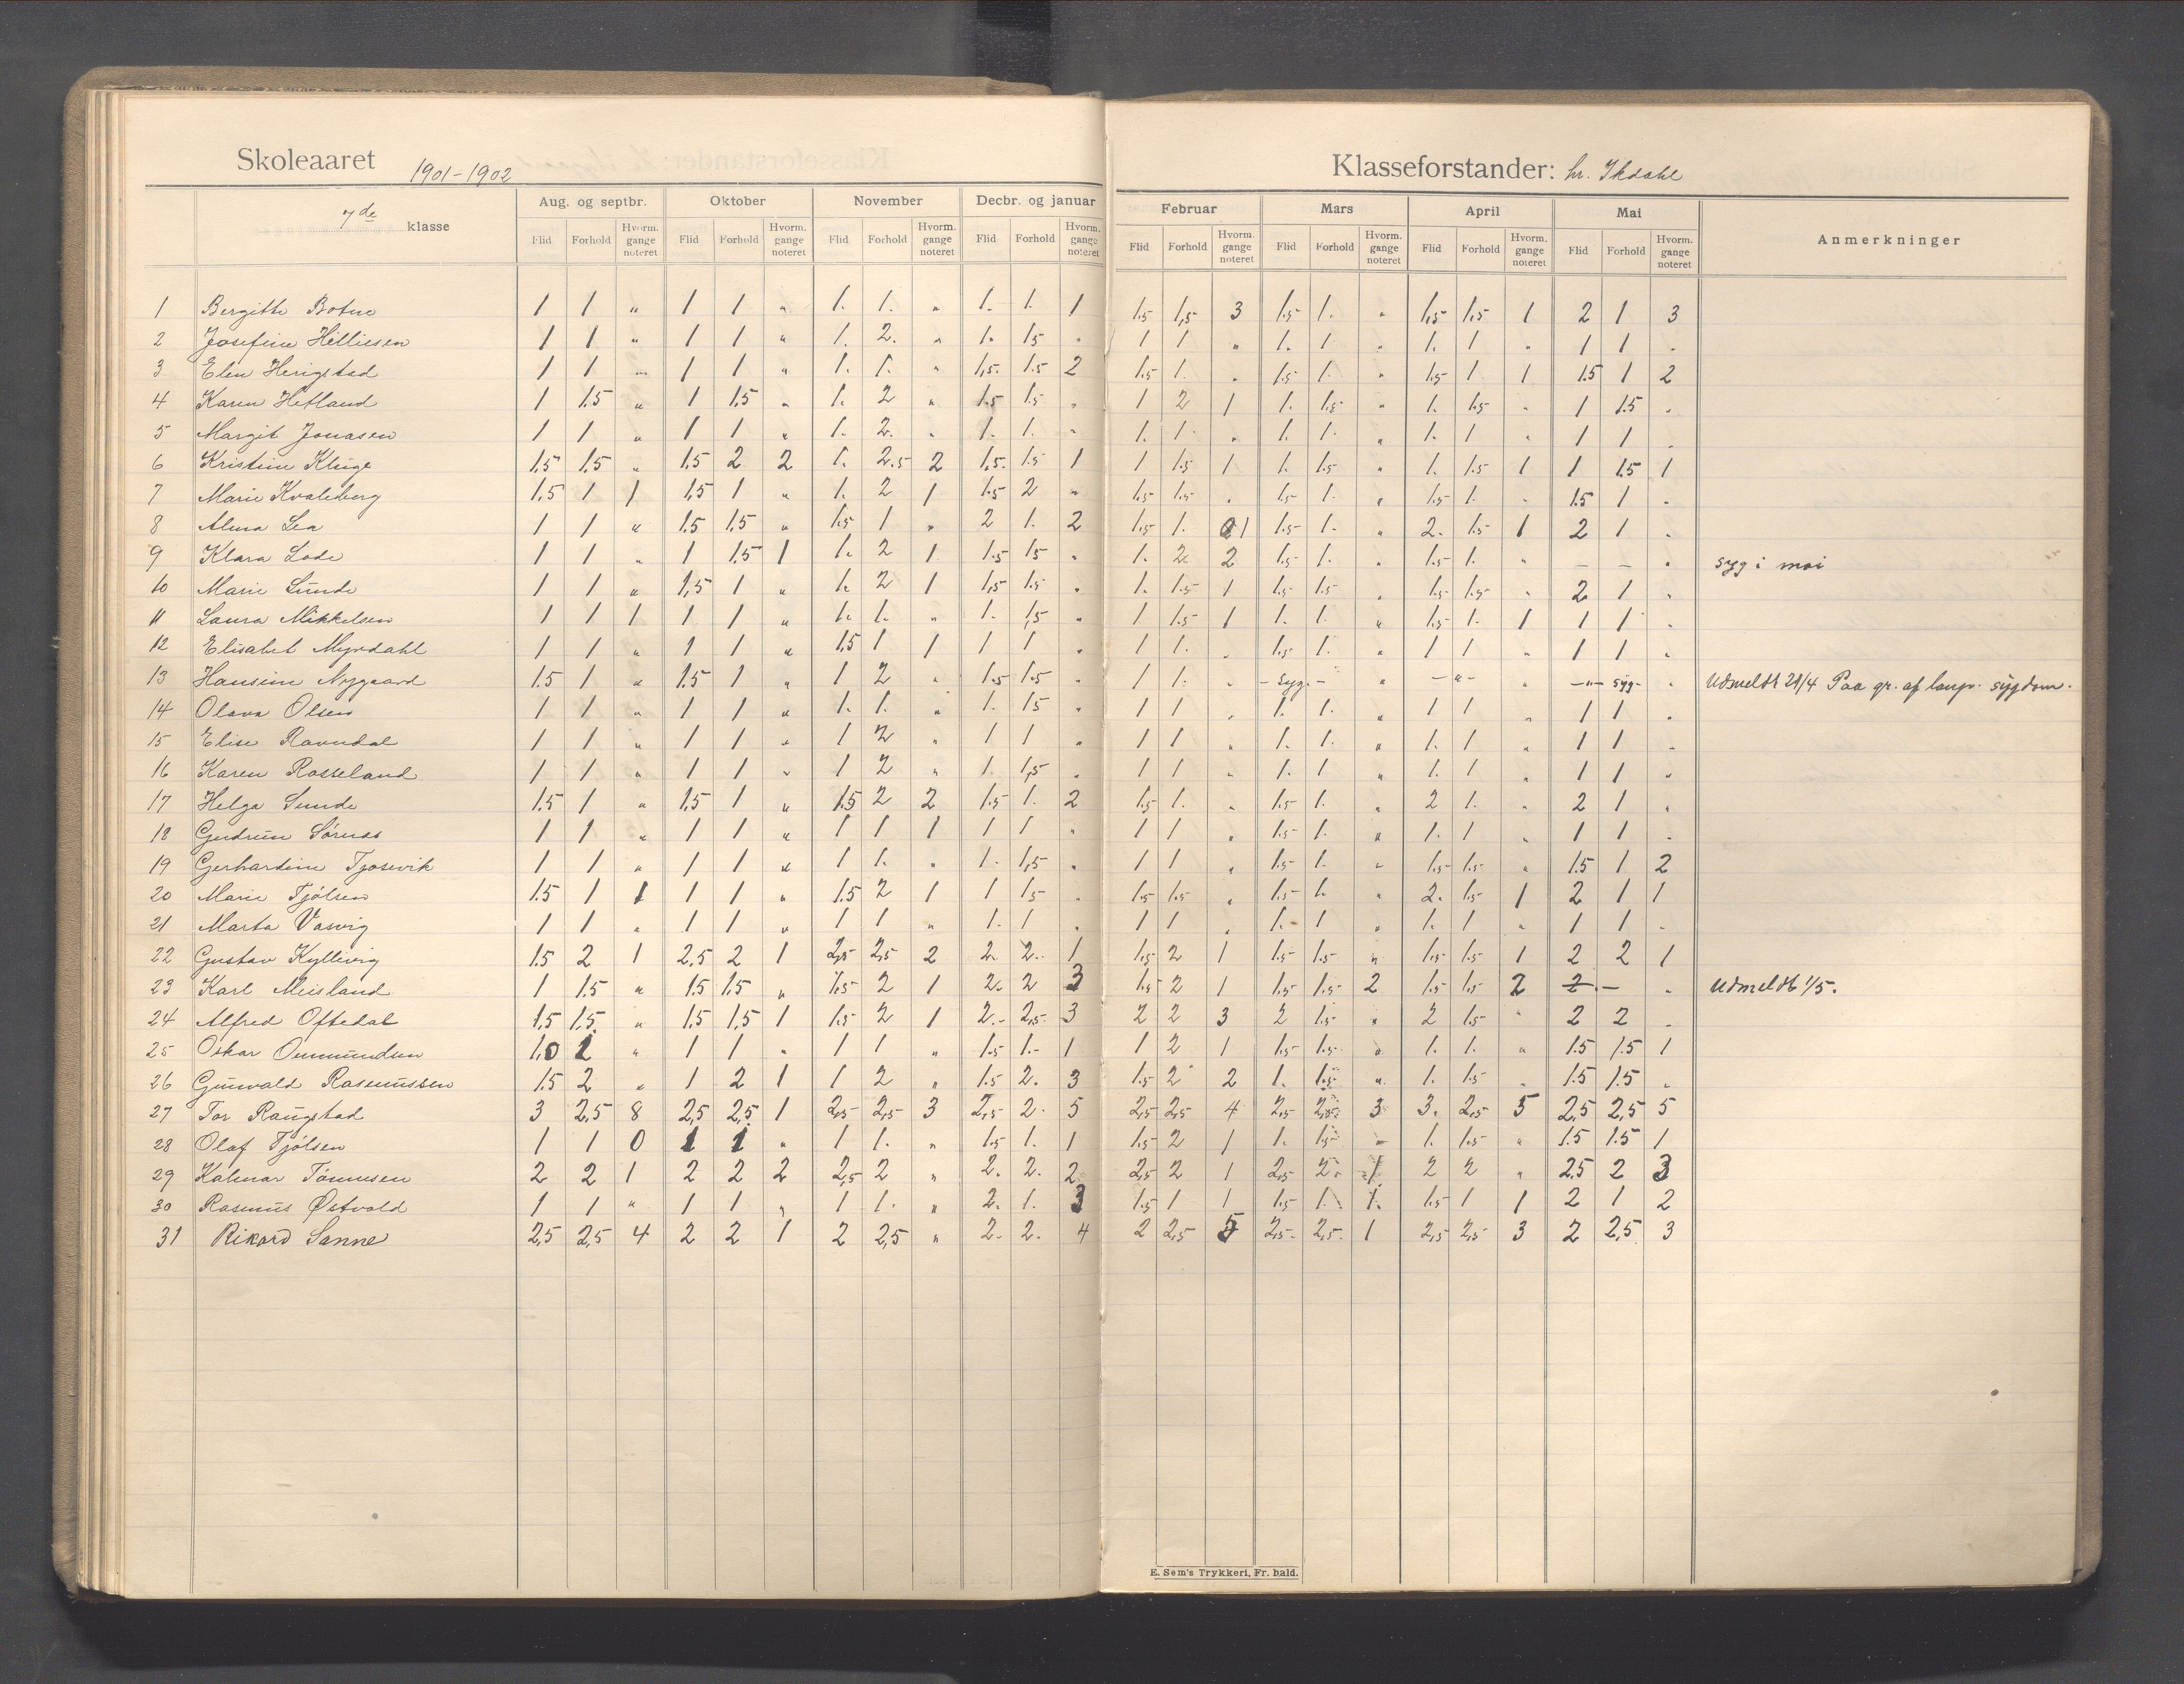 Skoleaaret 1901-1902 Klasseforstander: hr. Ikdahl
7de klasse
Aug. og septbr. Oktober November Decbr. og januar Februar Mars April Mai Anmerkninger
Flid Forhold Hvorm. gange noteret Flid Forhold Hvorm. gange noteret Flid Forhold Hvorm. gange noteret Flid Forhold Hvorm. gange noteret Flid Forhold Hvorm. gange noteret Flid Forhold Hvorm. gange noteret Flid Forhold Hvorm. gange noteret Flid Forhold Hvorm. gange noteret
1 Bergitte Botne 1 1 " 1 1 " 1. 1. " 1. 1. 1 1.5 1,5 3 1.5 1. " 1,5 1.5 1 2 1 3
2 Josefine Hilliesen 1 1 " 1 1 " 1. 2. " 1. 1.5 " 1 1 " 1. 1 " 1. 1 " 1 1 "
3 Elen Herigstad 1 1 " 1 1 " 1. 1. " 1,5. 1.5 2 1.5 1. " 1.5 1. " 1.5 1 1 1.5 1 2
4 Karen Hetland 1 1.5 " 1 1.5 " 1. 2 " 1.5 1.5 " 1 2 1 1. 1.5 " 1. 1.5 " 1 1.5 "
5 Margit Jonasen 1 1 " 1 1 " 1. 2. " 1. 1. " 1. 1. " 1. 1. " 1. 1 " 1 1 "
6 Kristine Kluge 1.5 1.5 " 1.5 2 2 1. 2.5 2 1.5. 1.5 1 1 1.5 1 1. 1.5 " 1. 1.5 1 1 1.5 1
7 Marie Kvaleberg 1.5 1 1 1,5 1 " 1. 2 1 1.5 2 " 1.5 1.5 " 1.5 1. " 1.5 1. " 1.5 1 "
8 Alma Lea 1 1 " 1.5 1.5 " 1.5 1 " 2 1. 2 1.5 1. 1 1.5 1. " 2. 1.5 1 2 1 "
9 Klara Lode 1 1 " 1 1.5 1 1. 2 1 1.5 1.5 " 1. 2 2 1.5 1. " 1.5 1. " — — " syg i mai
10 Marie Lunde 1 1 " 1,5 1 " 1. 2 1 1,5 1.5 " 1. 1.5 1 1.5 1.5 " 1.5 1.5 " 2 1 "
11 Laura Mikkelsen 1 1 1 1 1 " 1. 1. " 1. 1,5 " 1 1.5 1 1. 1. " 1.5 1. 1 1 1 "
12 Elisabet Myrdahl 1 1 " 1 1 " 1.5 1 1 1 1 " 1 1. " 1.5 1. " 1 1 " 1 1 "
13 Hansine Nygaard 1.5 1 " 1.5 1 " 1 2 " 1.5 1.5 " 1 1. " - syg. - " —"— " —"— syg- " Udmeldt 21/4 Paa gr. af langv. sygdom.
14 Olava Olsen 1 1 " 1 1 " 1. 1. " 1. 1.5 " 1 1 " 1. 1. " 1 1 " 1 1 "
15 Elise Ravndal 1 1 " 1 1 " 1 2 " 1 1 " 1 1 " 1. 1. " 1. 1 " 1 1 "
16 Karen Rosseland 1 1 " 1 1 " 1 2 " 1. 1,5 " 1 1 " 1. 1 " 1. 1 " 1 1 "
17 Helga Sunde 1.5 1 " 1,5 1 " 1.5 2 2 1.5 1. 2 1.5 1. " 1.5 1. " 2 1. " 2 1 "
18 Gudrun Sörnes 1 1 " 1 1 " 1 1 1 1 1 " 1 1 " 1.5 1. " 1. 1 " 1 1 "
19 Gerhardine Tjosevik 1 1 " 1 1 " 1 1. " 1. 1,5 " 1 1 " 1.5 1. " 1.5 1.5 " 1.5 1 2
20 Marie Tjölsen 1.5 1 1 1 1 " 1.5 2 1 1 1.5 " 1.5 1.5 " 1.5 1. " 2. 1.5 1 2 1 1
21 Marta Vasvig 1 1 " 1 1 " 1 1 " 1. 1 " 1 1 " 1. 1 " 1. 1 " 1 1 "
22 Gustav Kyllivig 1.5 2 1 2,5 2 1 2,5 2,5 2 2. 2. 1 1.5 2 1 1.5 1.5 " 1.5 1.5 1 2 2 1
23 Karl Meisland 1 1.5 " 1.5 1.5 " 1.5 2 1 2. 2 3 1.5 2 1 1.5 1.5 2 1.5 1.5 2 2. — " Udmeldt 1/5.
24 Alfred Oftedal 1,5 1.5 " 1.5 1.5 1 1.5 2 1 2. 2,5. 3 2 2 3 2 1.5 " 2 1.5 " 2 2 "
25 Oskar Ommundsen 1,0 1 " 1 1 " 1 1 " 1.5 1. 1 1 2 1 1.5 1.5 " 1. 1. " 1.5 1.5 1
26 Gunvald Rasmussen 1.5 2 " 1 2 1 1 2 " 1.5 2. 3 1.5 2 2 1. 1.5 " 1. 1.5 " 1.5 1.5 "
27 Tor Raugstad 3 2,5 8 2,5 2,5 1 2,5 2,5 3 2,5 2. 5 2,5 2,5 4 2,5 2,5 3 3. 2,5 5 2,5 2,5 5
28 Olaf Tjölsen 1 1 0 1 1 " 1 1. " 1.5 1. 1 1.5 2 1 1. 1.5 " 1. 1.5 " 1.5 1.5 1
29 Kalmar Tönnesen 2 2 1 2 2 2 2,5 2 " 2. 2. 2 2,5 2 1 2,5 2. 1 2 2 " 2,5 2 3
30 Rasmus Østvold 1 1 " 1 1 " 1 1. " 2. 1. 3 1.5 1 1 1.5 1. 1. 1.5 1 1 2 1 2
31 Rikard Sanne 2,5 2,5 4 2 2 1 2 2,5 " 2. 2. 4 2 2,5 5 2,5. 2,5. 1 2,5 2,5 3 2 2,5 3
E. Sem's Trykkeri, Fr. hald.